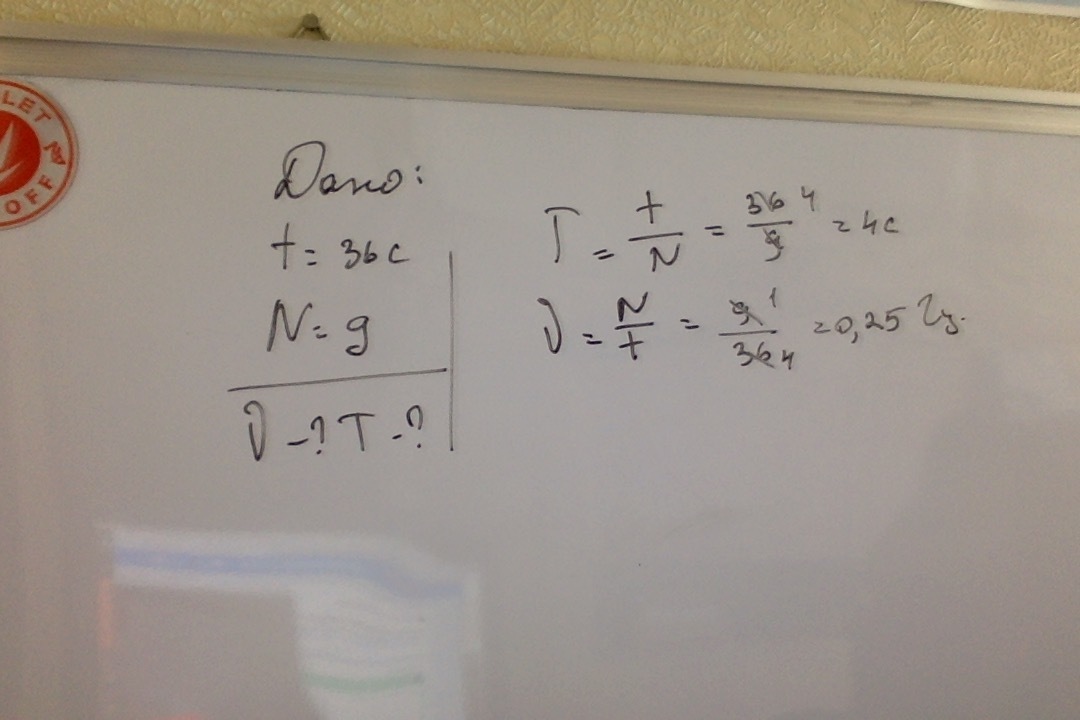 LET
OFF
Дано:
t = 36 c
N = 9
ν - ? T - ?
T = t/N = 36 4/9 = 4 c
ν = N/t = 9 1/36 4 = 0,25 Гц.